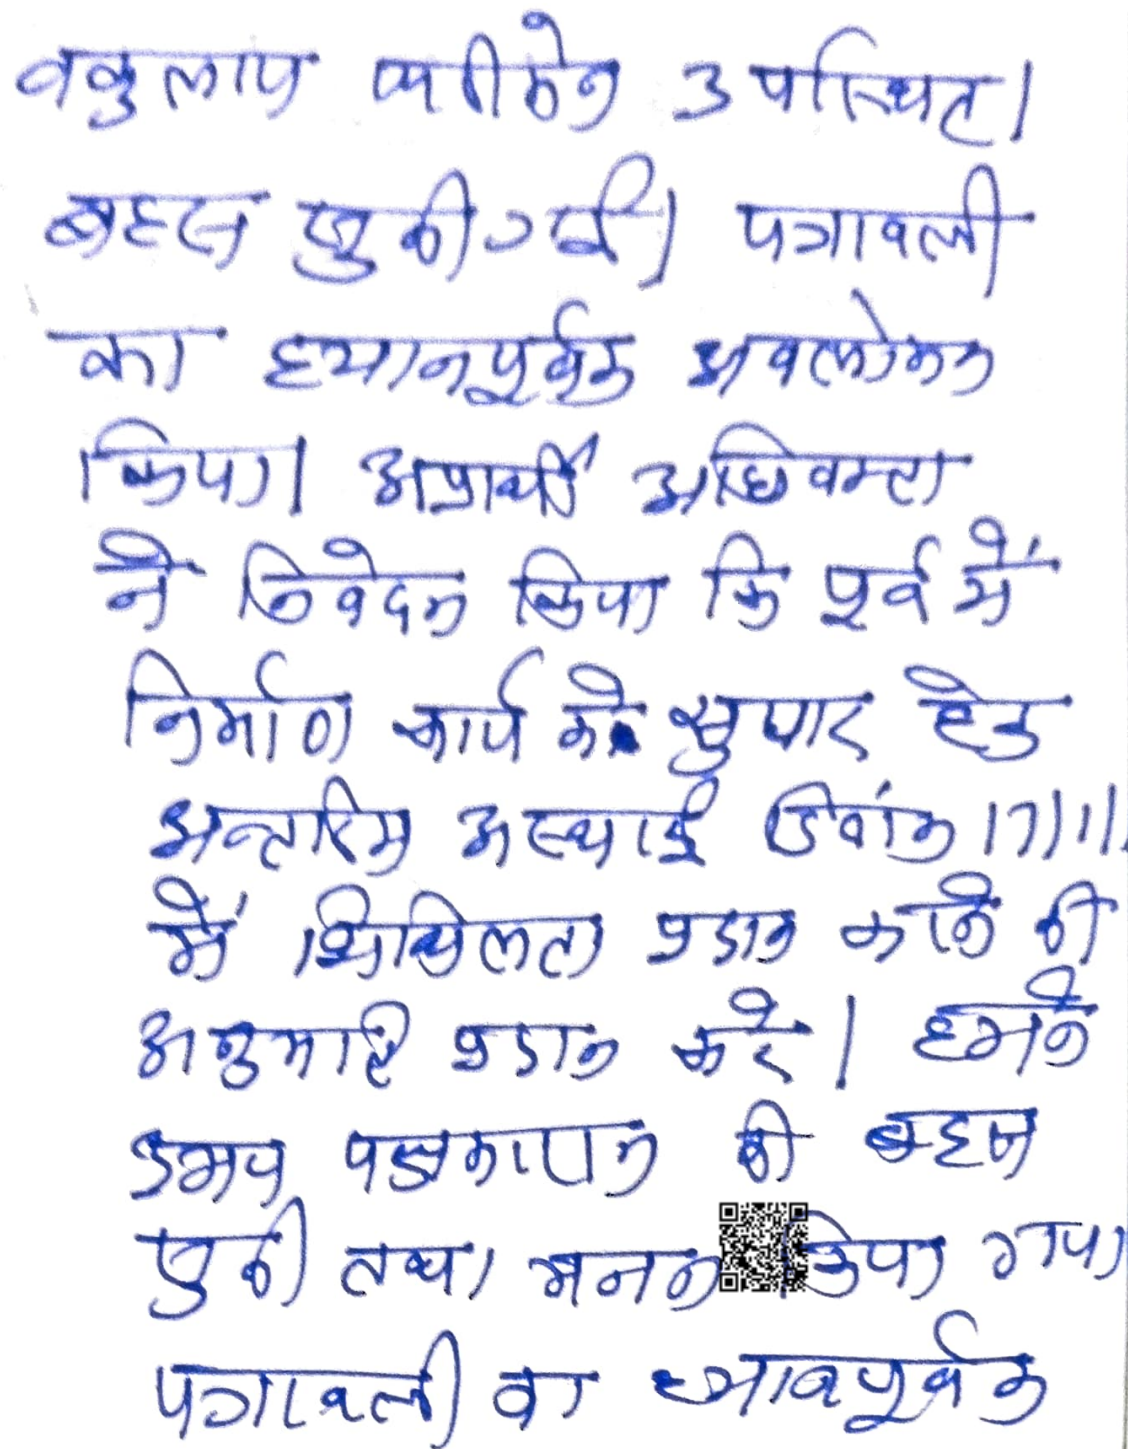 वकुलाय फरीकेन उपस्थित।
बहस सुनी गई। पत्रावली
का ध्यानपूर्वक अवलोकन
किया। अप्रार्थी अधिवक्ता
ने निवेदन किया कि पूर्व में
निर्माण कार्य के सुधार हेतु
अन्तरिम अस्थाई दिनांक 17/11/
में शिथिलता प्रदान करने की
अनुमति प्रदान करे। हमने
उभय पक्षकारान की बहस
सुनी तथा मनन किया गया
पत्रावली का ध्यानपूर्वक